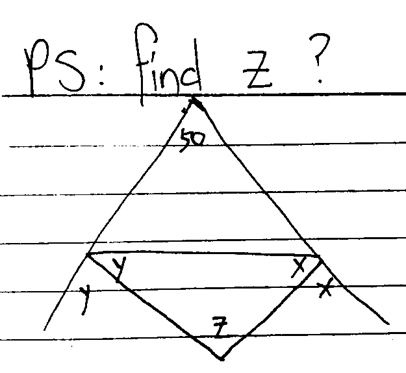 PS: find z ?
50
y x
y x
z